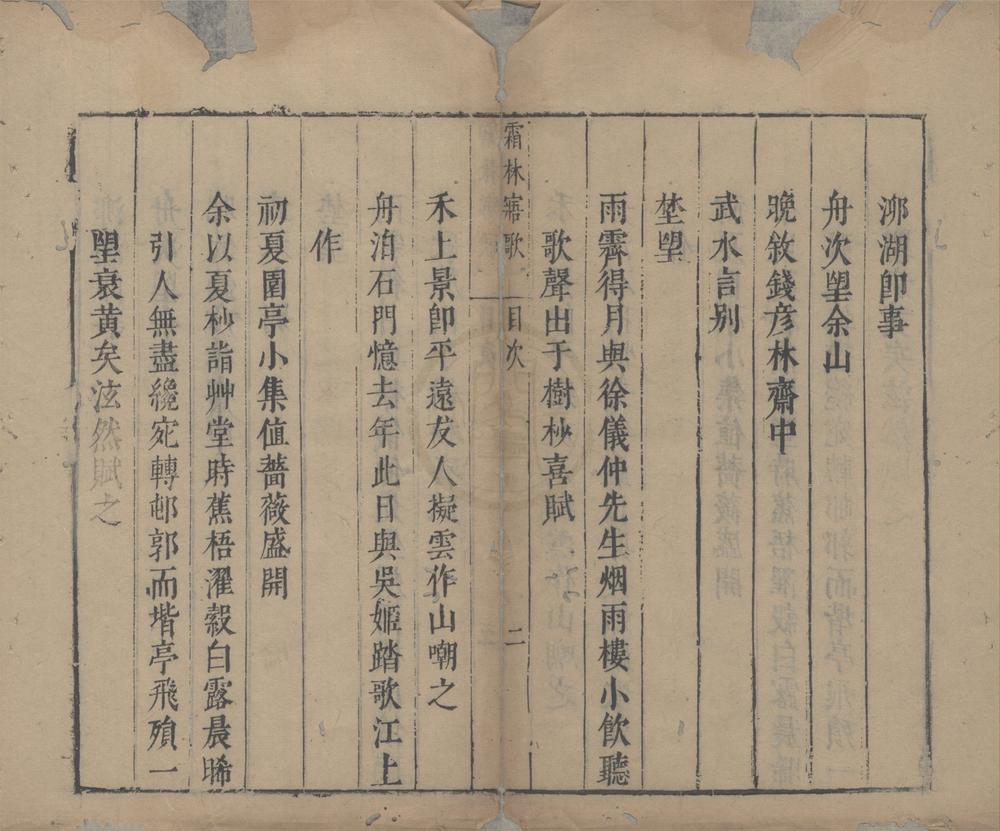 泖湖卽事
舟次朢余山
晚敘錢彦林齋中
武水言别
埜朢
雨霽得月與徐儀仲先生烟雨樓小飲聽
歌聲出于樹杪喜賦
霜林寤歌 目次 二
禾上景卽平遠友人擬雲作山嘲之
舟泊石門憶去年此日與吳姬踏歌江上
作
初夏園亭小集值薔薇盛開
余以夏杪詣艸堂時蕉梧濯縠白露晨晞
引人無盡纔宛轉邨郭而堦亭飛殞一
朢衰黃矣泫然賦之